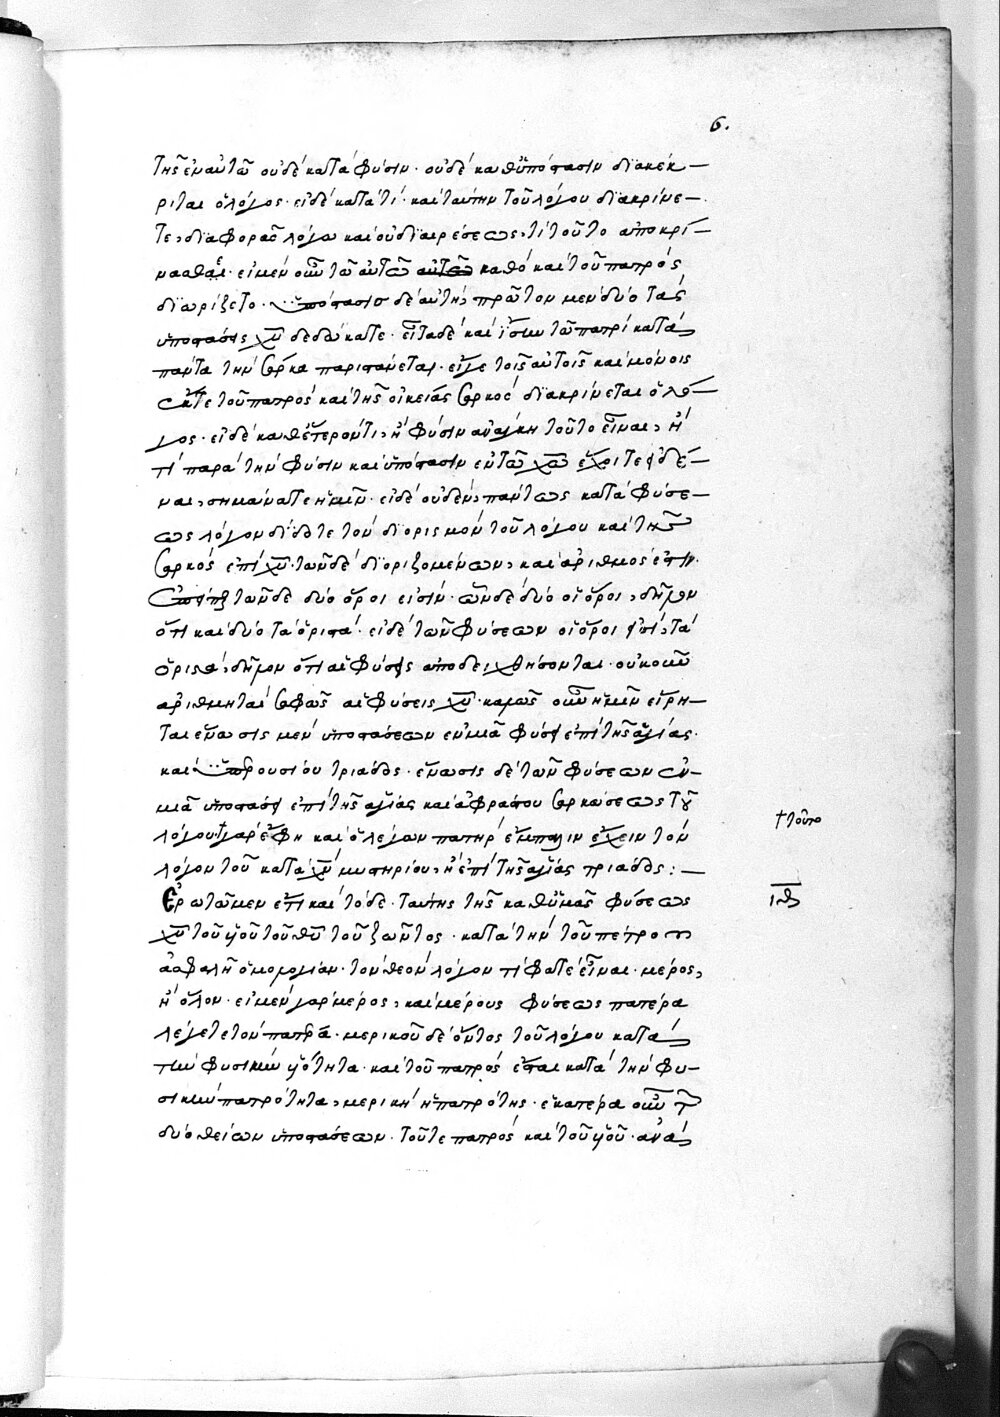 6.
τῆς ἐν αὐτῶ οὐδὲ κατὰ φύσιν· οὐδὲ καθ' ὑπόστασιν διακέκ-
ριται ὁ λόγος· εἰ δὲ κατά τι· καὶ ταύτην τοῦ λόγου διακρίνε-
τε, διαφορᾶς λόγω καὶ οὐ διαιρέσεως, τί τοῦτο ἀποκρί-
νασθαι· εἰ μὲν οὖν τῶ αὐτῶ αὐτῶ καθὸ καὶ τοῦ πατρὸς
διωρίζετο· ὑπόστασις δὲ αὐτὴ, πρῶτον μὲν δύο τὰς
ὑποστάσεις χυ δεδώκατε· εἶτα δὲ καὶ ἴσην τῶ πατρὶ κατὰ
πάντα τὴν σάρκα παριστάνεται· εἴγε τοῖς αὐτοῖς καὶ μόνοις
ἔκ τε τοῦ πατρὸς καὶ τῆς οἰκείας σαρκὸς διακρίνεται ὁ λό-
γος· εἰ δὲ καθ' ἕτερόν τι, ἢ φύσιν ἀνάγκη τοῦτο εἶναι, ἤ
τι παρὰ τὴν φύσιν καὶ ὑπόστασιν ἐν τῶ χῶ
ναι, σημάνατε ἡμῖν· εἰ δὲ οὐδὲν, πάντως κατὰ φύσε-
ως λόγον δίδοτε τὸν διορισμὸν τοῦ λόγου καὶ τῆς
σαρκὸς ἐπὶ χυ· τῶν δὲ διοριζομένων, καὶ ἀριθμὸς ἐστιν·
τῶν δὲ δύο ὅροι εἰσίν· ὧν δὲ δύο οἱ ὅροι, δῆλον
ὅτι καὶ δύο τὰ ὁριστά· εἰ δὲ τῶν φύσεων οἱ ὅροι εἰσί, τὰ
ὁριστὰ, δῆλον ὅτι αἱ φύσεις ἀποδειχθήσονται· οὐκοῦν
ἀριθμηταὶ σαφῶς αἱ φύσεις χυ· καλῶς οὖν ἡμῖν εἴρη-
ται ἕνωσις μὲν ὑποστάσεων ἐν μιᾶ φύσει ἐπὶ τῆς ἁγίας·
καὶ ὁμοουσίου τριάδος· ἕνωσις δὲ τῶν φύσεων ἐν
μιᾶ ὑποστάσει ἐπὶ τῆς ἁγίας καὶ ἀφράστου σαρκώσεως τοῦ
λόγου· † γὰρ ἔφη καὶ ὁ λέγων πατὴρ ἔμπαλιν ἔχειν τὸν
λόγον τοῦ κατὰ χν μυστηρίου, ἢ ἐπὶ τῆς ἁγίας τριάδος:—
† τοῦτο
Ἐρωτῶμεν ἔτι καὶ τόδε· ταύτης τῆς καθ' ὑμᾶς φύσεως
ιθ
χυ τοῦ υἱοῦ τοῦ θυ τοῦ ζῶντος· κατὰ τὴν τοῦ πέτρου
ἀσφαλῆ ὁμολογίαν· τὸν θεὸν λόγον τί φατὲ εἶναι· μέρος,
ἢ ὅλον· εἰ μὲν γὰρ μέρος, καὶ μέρους φύσεως πατέρα
λέγετε τὸν πατέρα· μερικοῦ δὲ ὄντος τοῦ λόγου κατὰ
τὴν φυσικὴν υἱότητα· καὶ τοῦ πατρὸς ἔσται κατὰ τὴν φυ-
σικὴν πατρότητα, μερικὴ ἡ πατρότης· ἑκατέρα οὖν τῶν
δύο θείων ὑποστάσεων· τοῦ τε πατρὸς καὶ τοῦ υἱοῦ· ἀνὰ